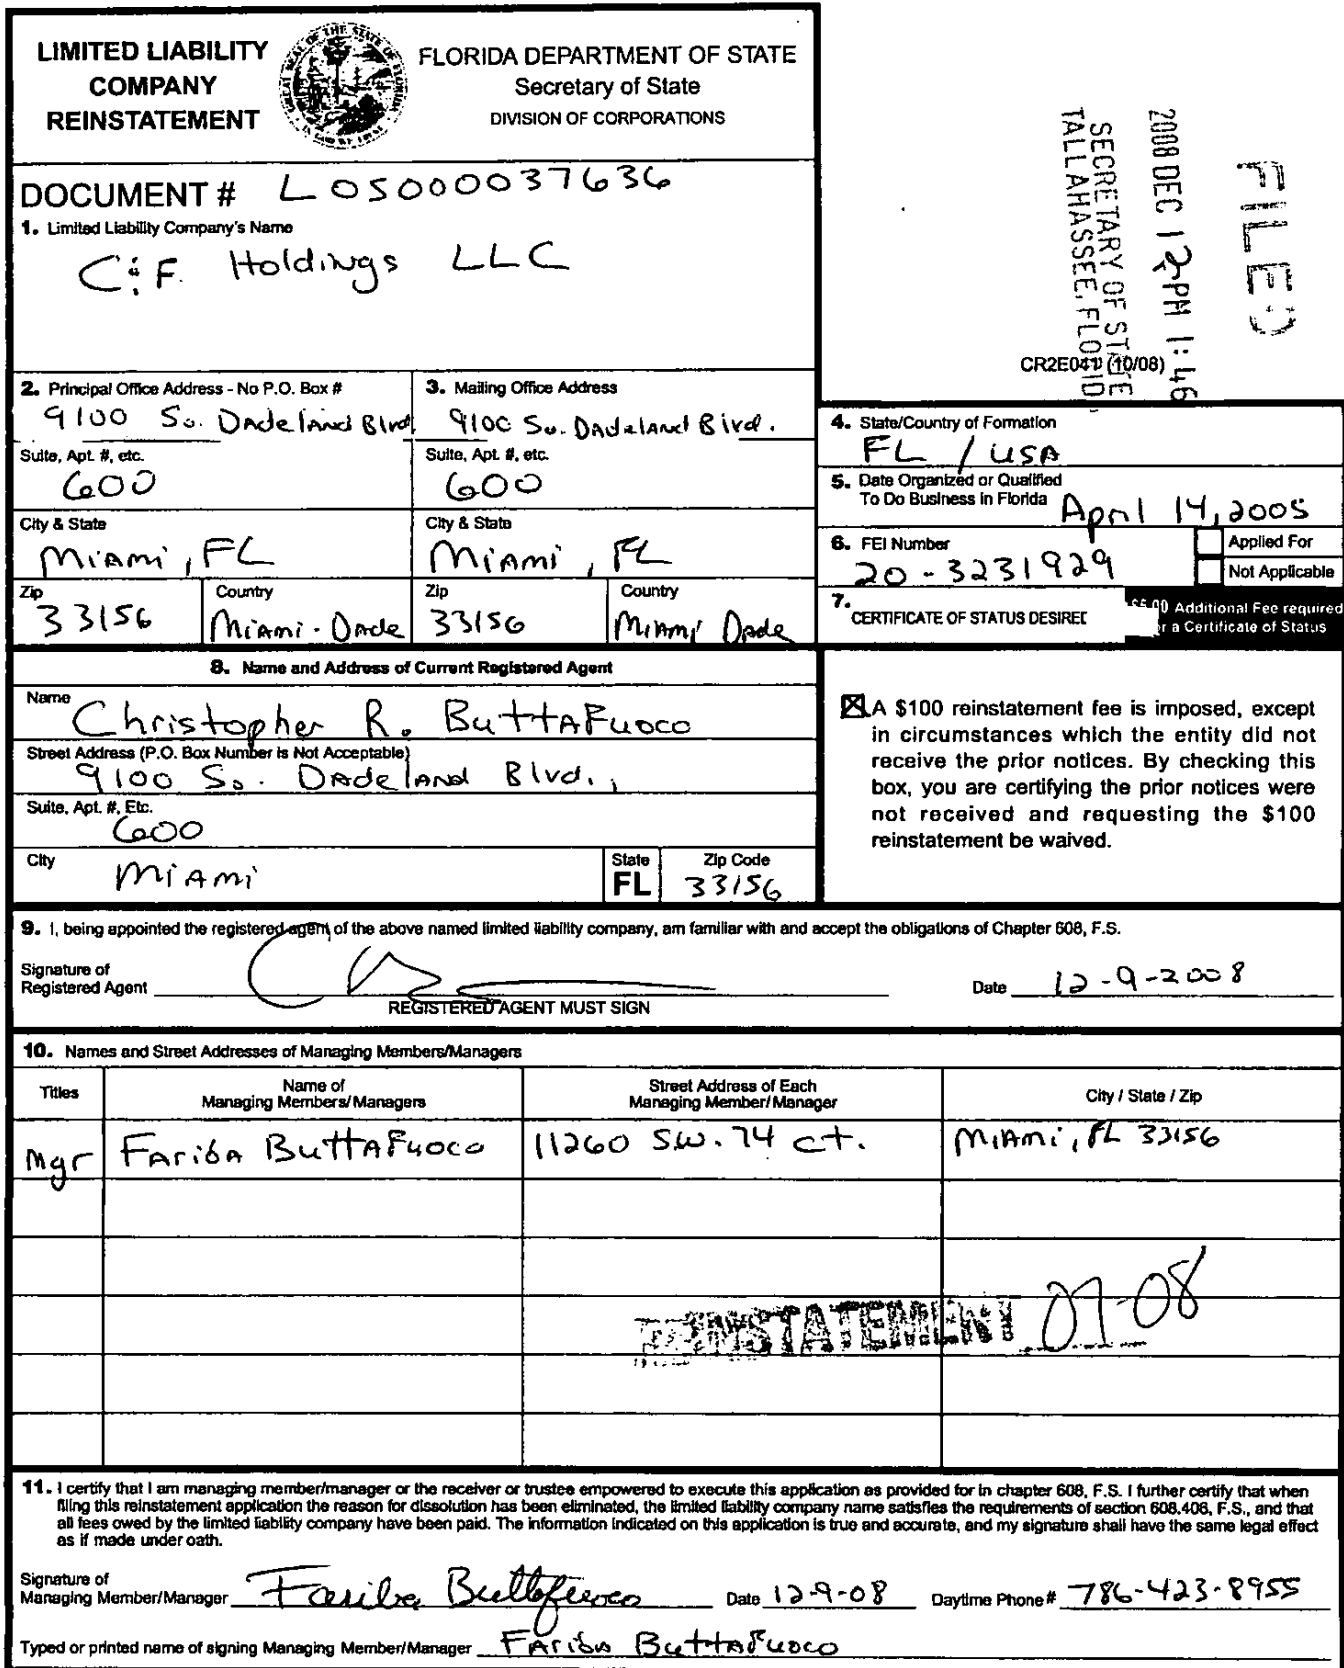 LIMITED LIABILITY
COMPANY
REINSTATEMENT
FLORIDA DEPARTMENT OF STATE
Secretary of State
DIVISION OF CORPORATIONS
FILED
2008 DEC 12 PM 1:46
SECRETARY OF STATE
TALLAHASSEE, FLORIDA
DOCUMENT # L05000037636
1. Limited Liability Company's Name
C & F. Holdings LLC
CR2E041 (10/08)
2. Principal Office Address - No P.O. Box #
9100 So. Dadeland Blvd.
3. Mailing Office Address
9100 So. Dadeland Blvd.
Suite, Apt. #, etc.
600
Suite, Apt. #, etc.
600
City & State
Miami, FL
City & State
Miami, FL
Zip
33156
Country
Miami-Dade
Zip
33156
Country
Miami Dade
4. State/Country of Formation
FL / USA
5. Date Organized or Qualified
To Do Business in Florida April 14, 2005
6. FEI Number
20-3231929
Applied For
Not Applicable
7. CERTIFICATE OF STATUS DESIRED
$5.00 Additional Fee required
for a Certificate of Status
8. Name and Address of Current Registered Agent
Name
Christopher R. Buttafuoco
Street Address (P.O. Box Number is Not Acceptable)
9100 So. Dadeland Blvd.,
Suite, Apt. #, Etc.
600
City
Miami
State
FL
Zip Code
33156
A $100 reinstatement fee is imposed, except
in circumstances which the entity did not
receive the prior notices. By checking this
box, you are certifying the prior notices were
not received and requesting the $100
reinstatement be waived.
9. I, being appointed the registered agent of the above named limited liability company, am familiar with and accept the obligations of Chapter 608, F.S.
Signature of
Registered Agent
REGISTERED AGENT MUST SIGN
Date 12-9-2008
10. Names and Street Addresses of Managing Members/Managers
Titles
Name of
Managing Members/Managers
Street Address of Each
Managing Member/Manager
City / State / Zip
Mgr Fariba Buttafuoco 11260 SW. 74 ct. Miami, FL 33156
REINSTATEMENT 07-08
11. I certify that I am managing member/manager or the receiver or trustee empowered to execute this application as provided for in chapter 608, F.S. I further certify that when
filing this reinstatement application the reason for dissolution has been eliminated, the limited liability company name satisfies the requirements of section 608.406, F.S., and that
all fees owed by the limited liability company have been paid. The information indicated on this application is true and accurate, and my signature shall have the same legal effect
as if made under oath.
Signature of
Managing Member/Manager Fariba Buttafuoco Date 12-9-08 Daytime Phone # 786-423-8955
Typed or printed name of signing Managing Member/Manager Fariba Buttafuoco